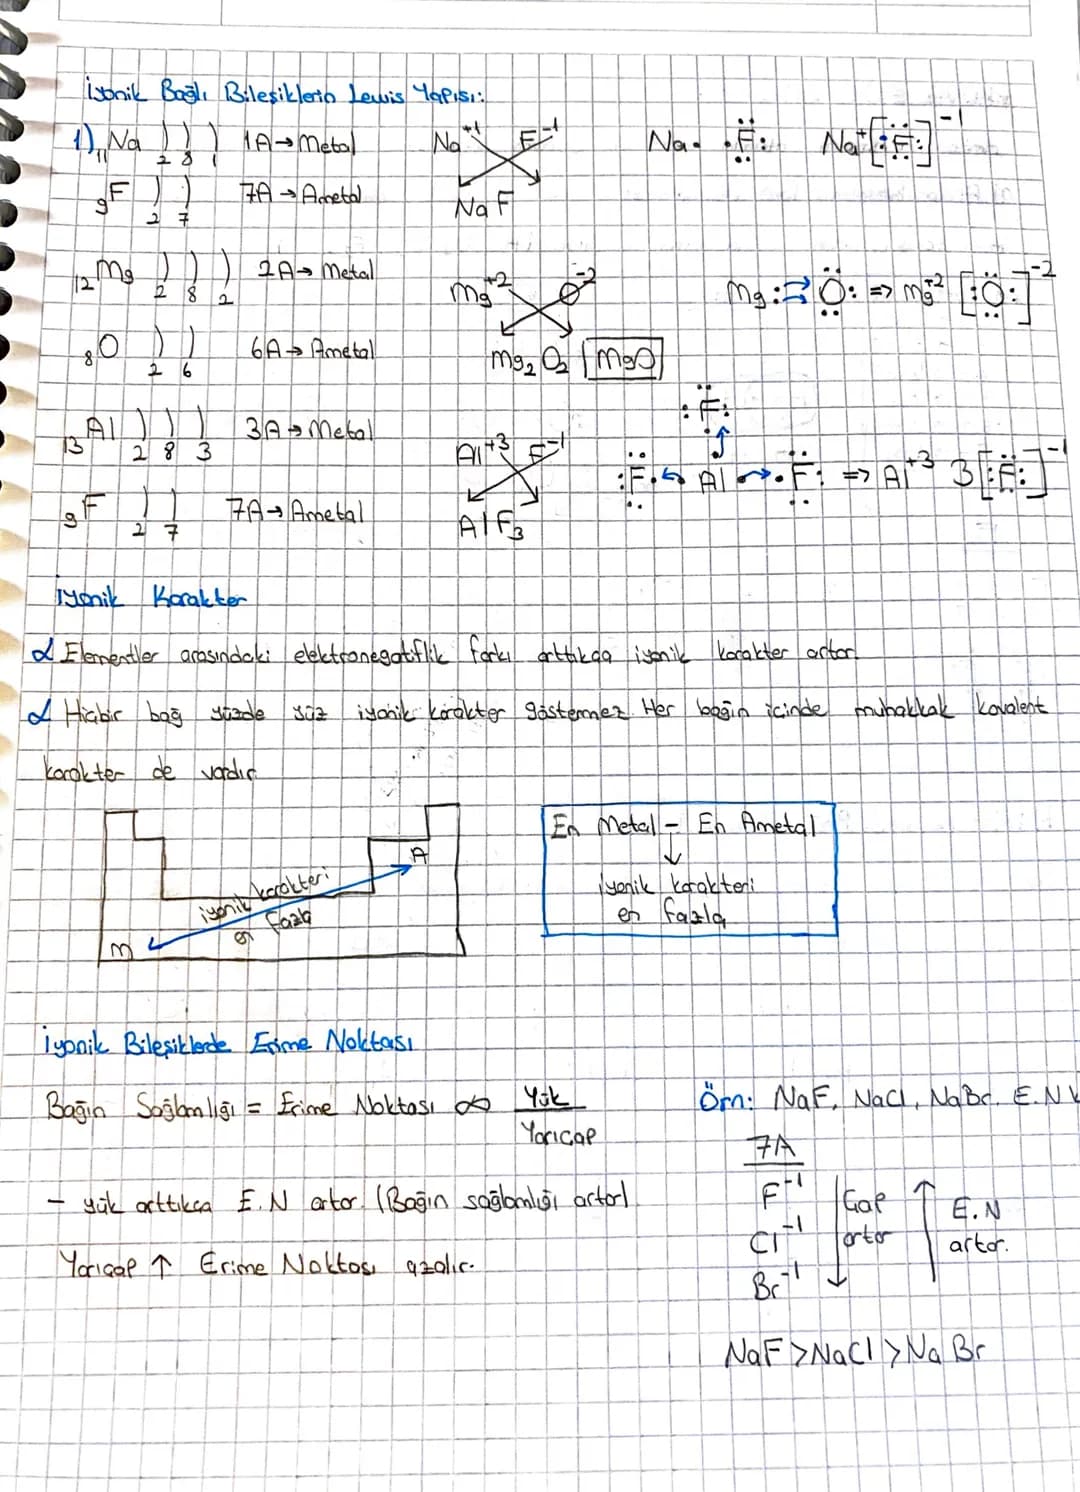 İyonik Bağlı Bileşiklerin Lewis Yapısı:
1) ₁₁Na ) ) ) 1A → Metal Na⁺¹ F⁻¹ Na· ·F: Na⁺[:F:]⁻¹
2 8 1
₉F ) ) 7A → Ametal NaF
2 7
₁₂Mg ) ) ) 2A → Metal Mg⁺² O⁻² Mg: O: => Mg⁺² [:O:]⁻²
2 8 2
₈O ) ) 6A → Ametal Mg₂O₂ MgO
2 6
:F:
₁₃Al ) ) ) 3A → Metal Al⁺³ F⁻¹ :F· Al ·F: => Al⁺³ 3[:F:]⁻¹
2 8 3
₉F ) ) 7A → Ametal AlF₃
2 7
İyonik Karakter
Elementler arasındaki elektronegatiflik farkı arttıkça iyonik karakter artar.
Hiçbir bağ yüzde yüz iyonik karakter göstermez. Her bağın içinde muhakkak kovalent
karakter de vardır.
A
iyonik karakteri
en fazla
M
En Metal - En Ametal
↓
İyonik karakteri
en fazla
İyonik Bileşiklerde Erime Noktası
Bağın Sağlamlığı = Erime Noktası ∝ Yük
Yarıçap
- yük arttıkça E.N artar. (Bağın sağlamlığı artar)
Yarıçap ↑ Erime Noktası azalır.
Örn: NaF, NaCl, NaBr. E.N
7A
F⁻¹
Cl⁻¹
Br⁻¹
Çap
artar
↓
↑
E.N
artar.
NaF > NaCl > NaBr